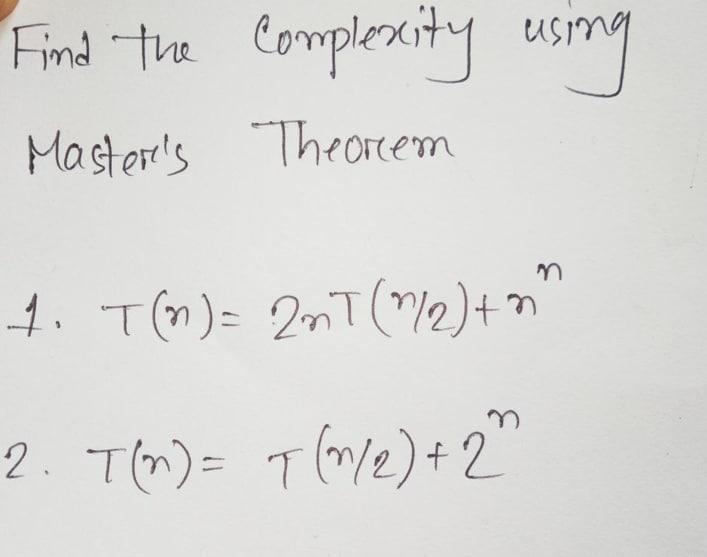 Find the Complexity using
Master's Theorem
1. T(n) = 2nT(n/2) + nⁿ
2. T(n) = T(n/2) + 2ⁿ